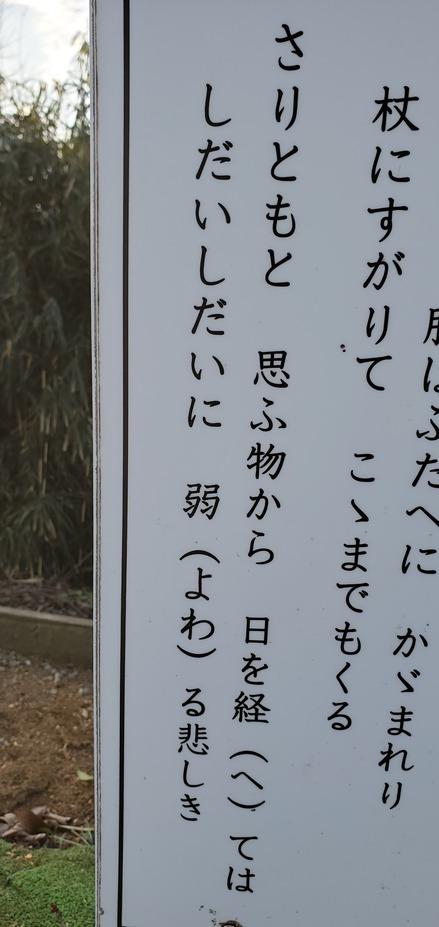 腰はふたへに　かゞまれり
杖にすがりて　こゝまでもくる
さりともと　思ふ物から　日を経（へ）ては
しだいしだいに　弱（よわ）る悲しき